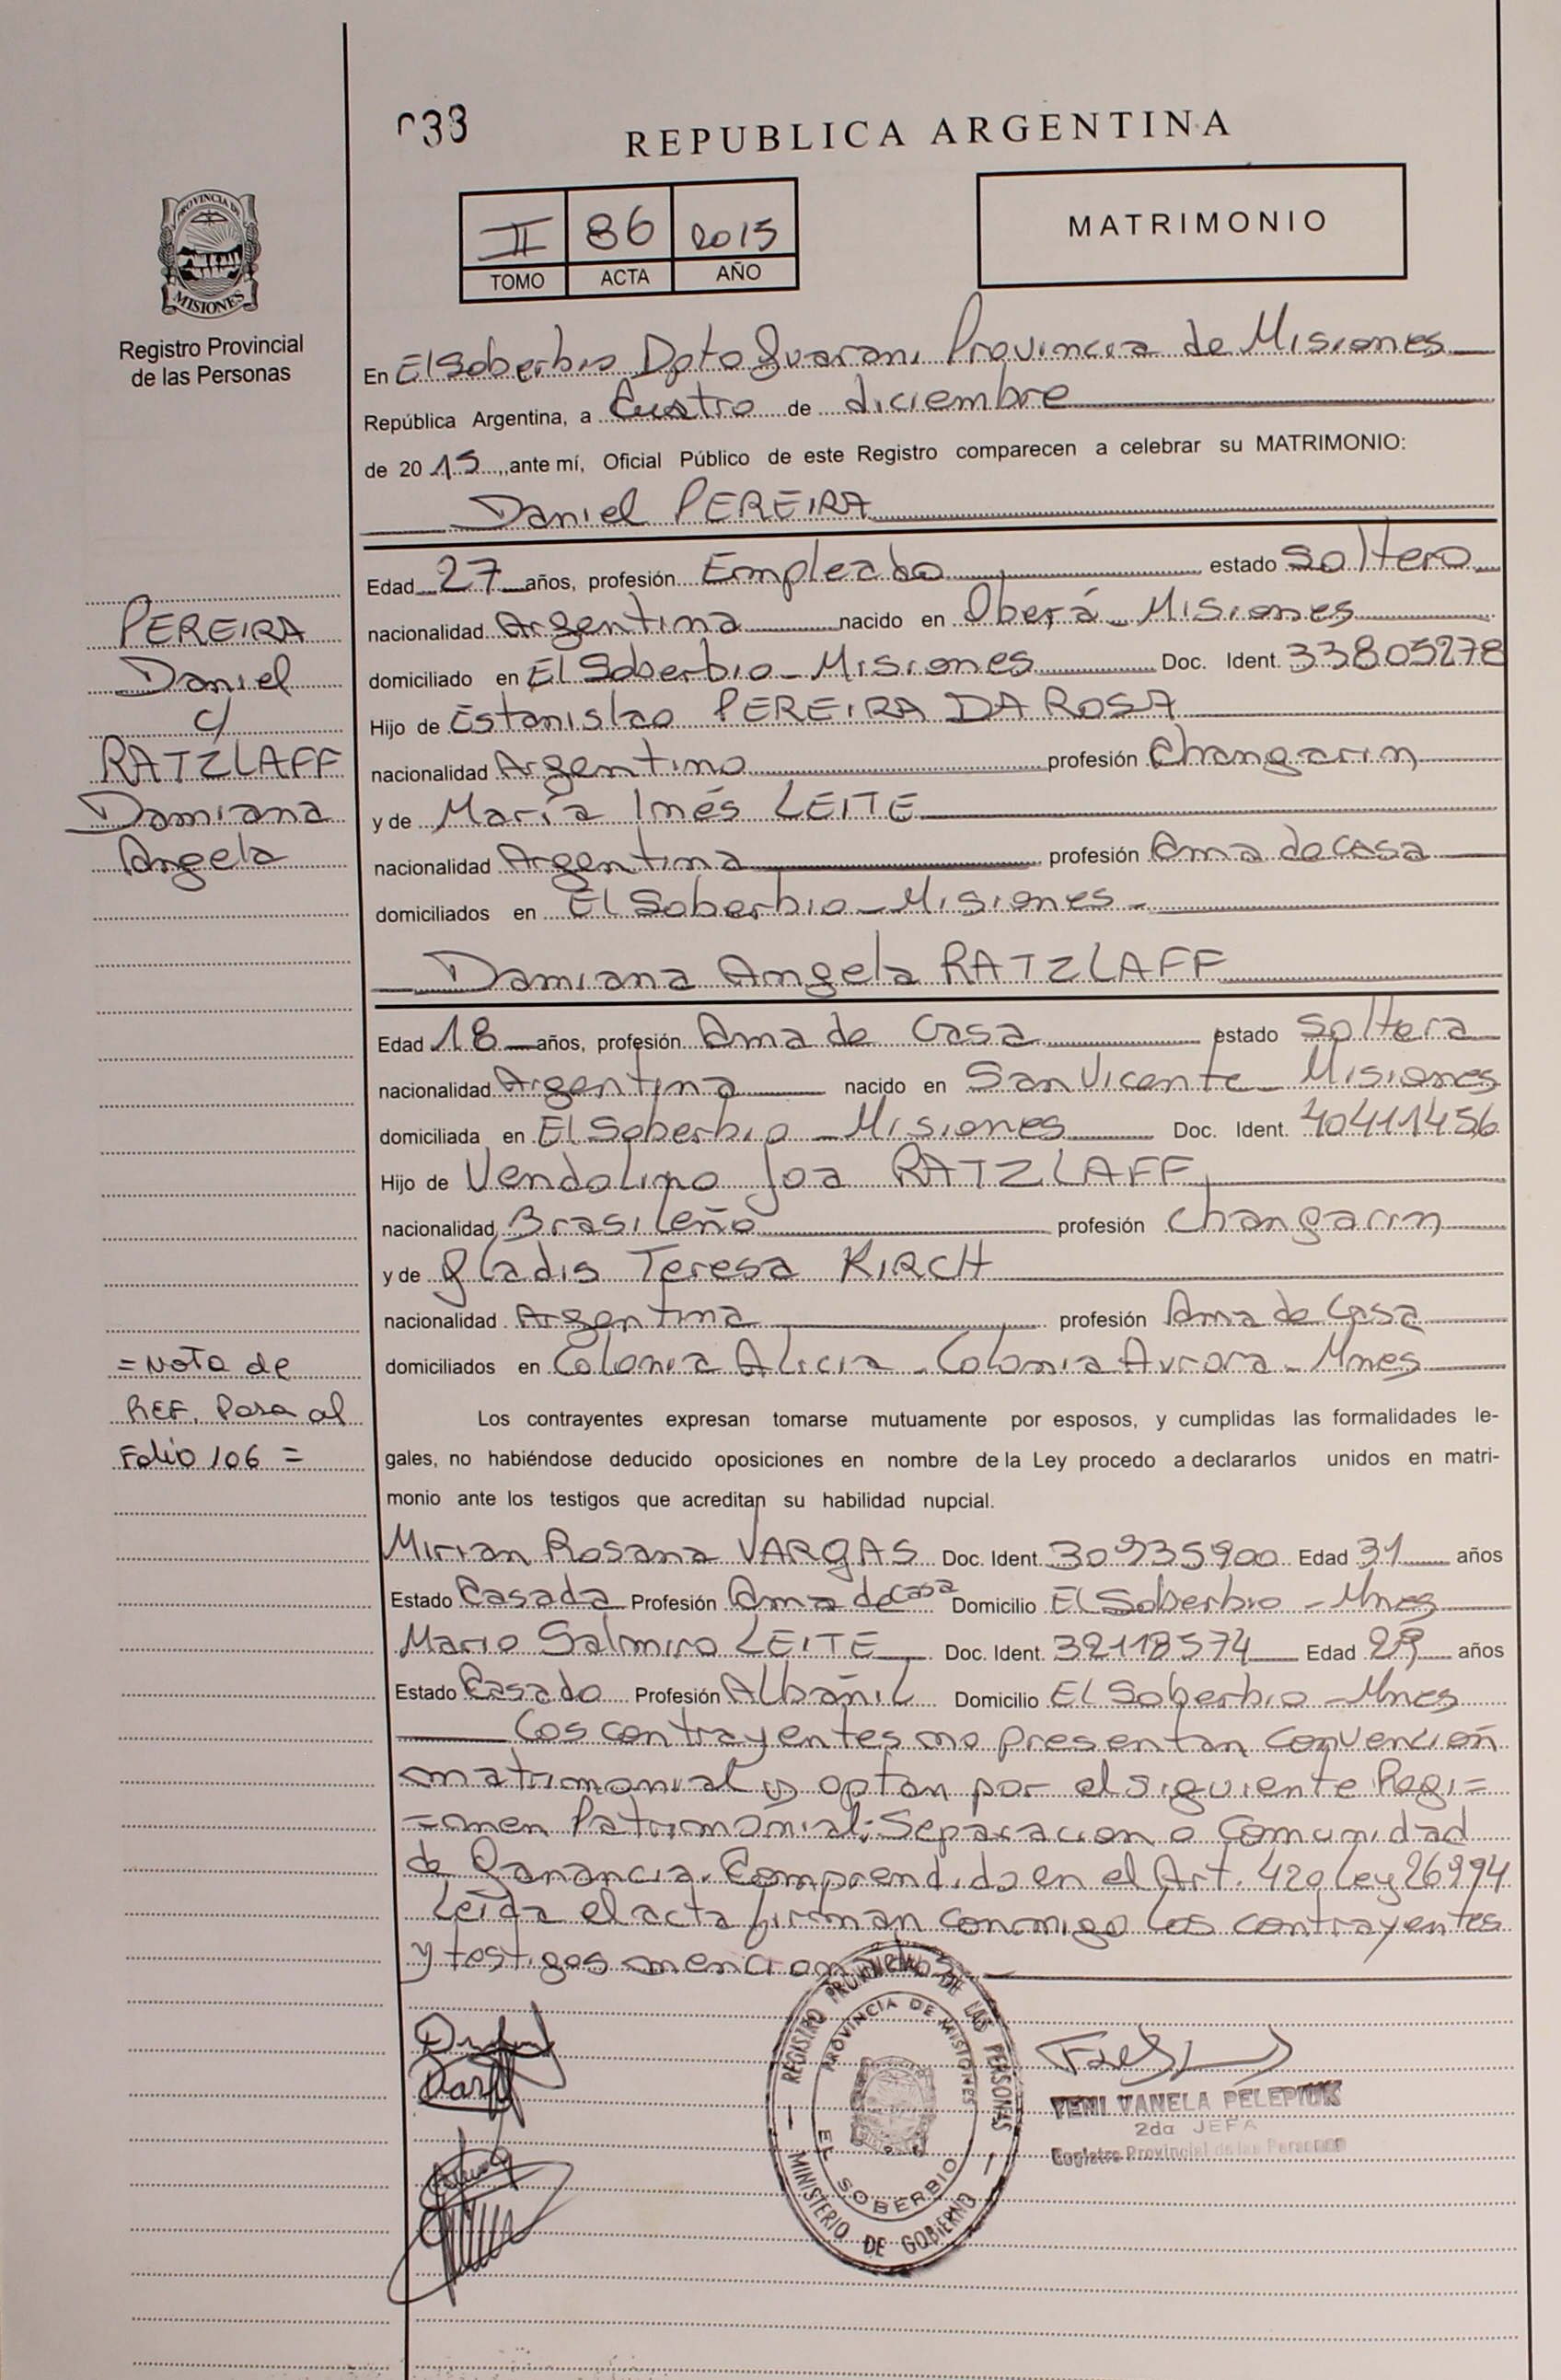 033
REPUBLICA ARGENTINA
PROVINCIA DE
MISIONES
Registro Provincial
de las Personas
II 86 2015
TOMO ACTA AÑO
MATRIMONIO
En El Soberbio Dpto Guarani Provincia de Misiones
República Argentina, a Cuatro de diciembre
de 2015, ante mí, Oficial Público de este Registro comparecen a celebrar su MATRIMONIO:
Daniel PEREIRA
Edad 27 años, profesión Empleado estado Soltero
nacionalidad Argentina nacido en Oberá - Misiones
domiciliado en El Soberbio - Misiones Doc. Ident. 33805278
Hijo de Estanislao PEREIRA DA ROSA
nacionalidad Argentino profesión Changarin
y de María Inés LEITE
nacionalidad Argentina profesión Ama de casa
domiciliados en El Soberbio - Misiones -
PEREIRA
Daniel
c/
RATZLAFF
Damiana
Angela
Damiana Angela RATZLAFF
Edad 18 años, profesión Ama de Casa estado Soltera
nacionalidad Argentina nacido en San Vicente - Misiones
domiciliada en El Soberbio - Misiones Doc. Ident. 40411456
Hijo de Vendolino Joa RATZLAFF
nacionalidad Brasileño profesión Changarin
y de Gladis Teresa KIRCH
nacionalidad Argentina profesión Ama de Casa
domiciliados en Colonia Alicia - Colonia Aurora - Mnes
= Nota de
REF. Pasa al
Folio 106 =
Los contrayentes expresan tomarse mutuamente por esposos, y cumplidas las formalidades le-
gales, no habiéndose deducido oposiciones en nombre de la Ley procedo a declararlos unidos en matri-
monio ante los testigos que acreditan su habilidad nupcial.
Mirian Rosana VARGAS Doc. Ident. 30935900 Edad 31 años
Estado Casada Profesión Ama de casa Domicilio El Soberbio - Mnes
Mario Salmiro LEITE Doc. Ident. 32118574 Edad 29 años
Estado Casado Profesión Albañil Domicilio El Soberbio - Mnes
Los contrayentes no presentan convención
matrimonial y optan por el siguiente Regi=
=men Patrimonial: Separacion o Comunidad
de Ganancia. Comprendido en el Art. 420 Ley 26994
Leida el acta firman conmigo los contrayentes
y testigos mencionados.
REGISTRO PROVINCIAL DE LAS PERSONAS
PROVINCIA DE MISIONES
EL SOBERBIO
MINISTERIO DE GOBIERNO
YENI VANELA PELEPIUK
2da JEFA
Registro Provincial de las Personas